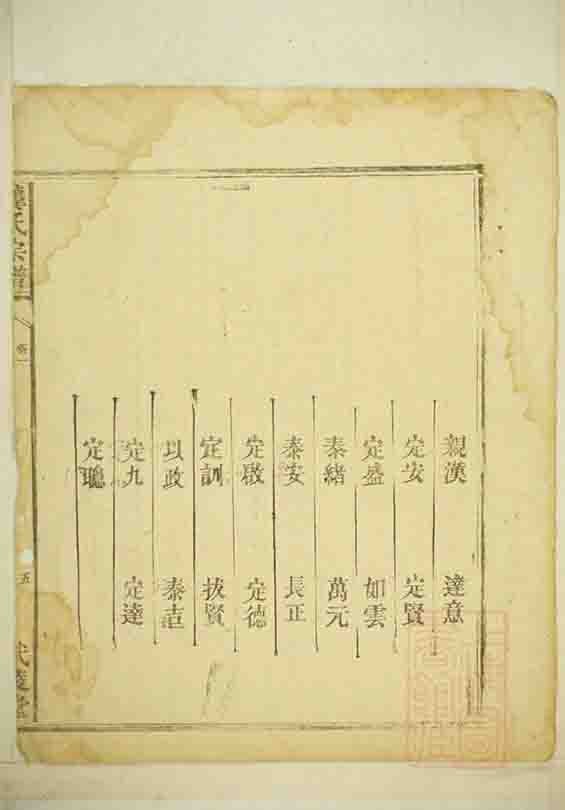 親漢 達意
定安 定賢
定盛 如雲
泰緒 萬元
泰安 長正
定啟 定德
定訓 拔賢
以政 泰誼
定九 定達
定聰
龔氏宗譜 卷一 五 武陵堂